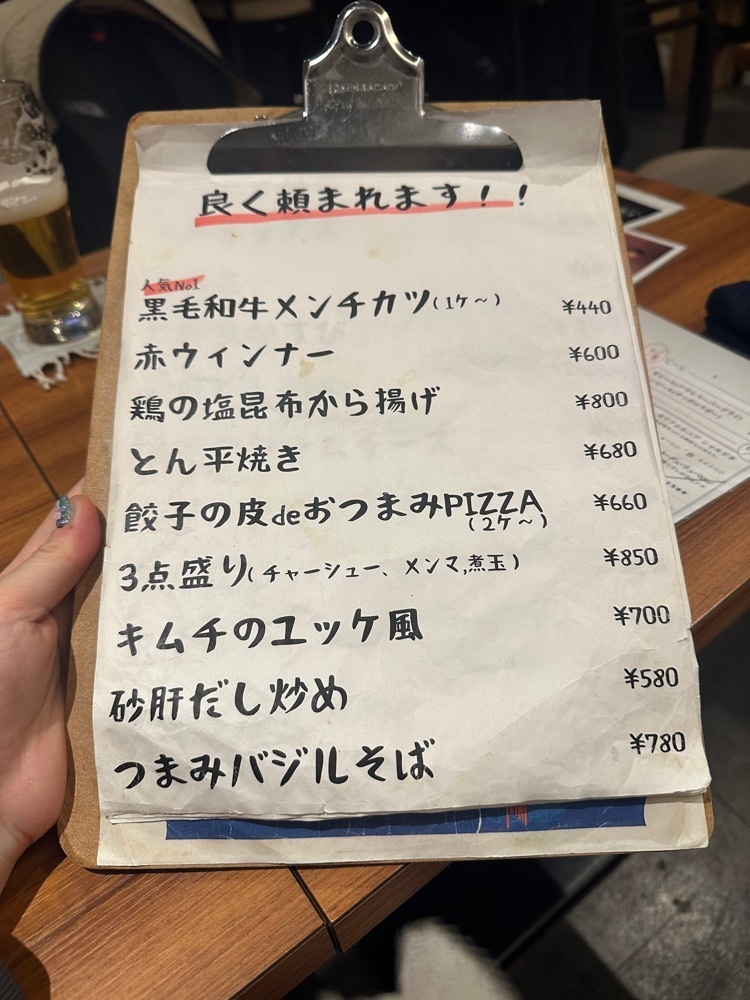 良く頼まれます！！
人気No1
黒毛和牛メンチカツ(1ケ〜) ¥440
赤ウィンナー ¥600
鶏の塩昆布から揚げ ¥800
とん平焼き ¥680
餃子の皮deおつまみPIZZA ¥660
(2ケ〜)
3点盛り(チャーシュー、メンマ,煮玉) ¥850
キムチのユッケ風 ¥700
砂肝だし炒め ¥580
つまみバジルそば ¥780